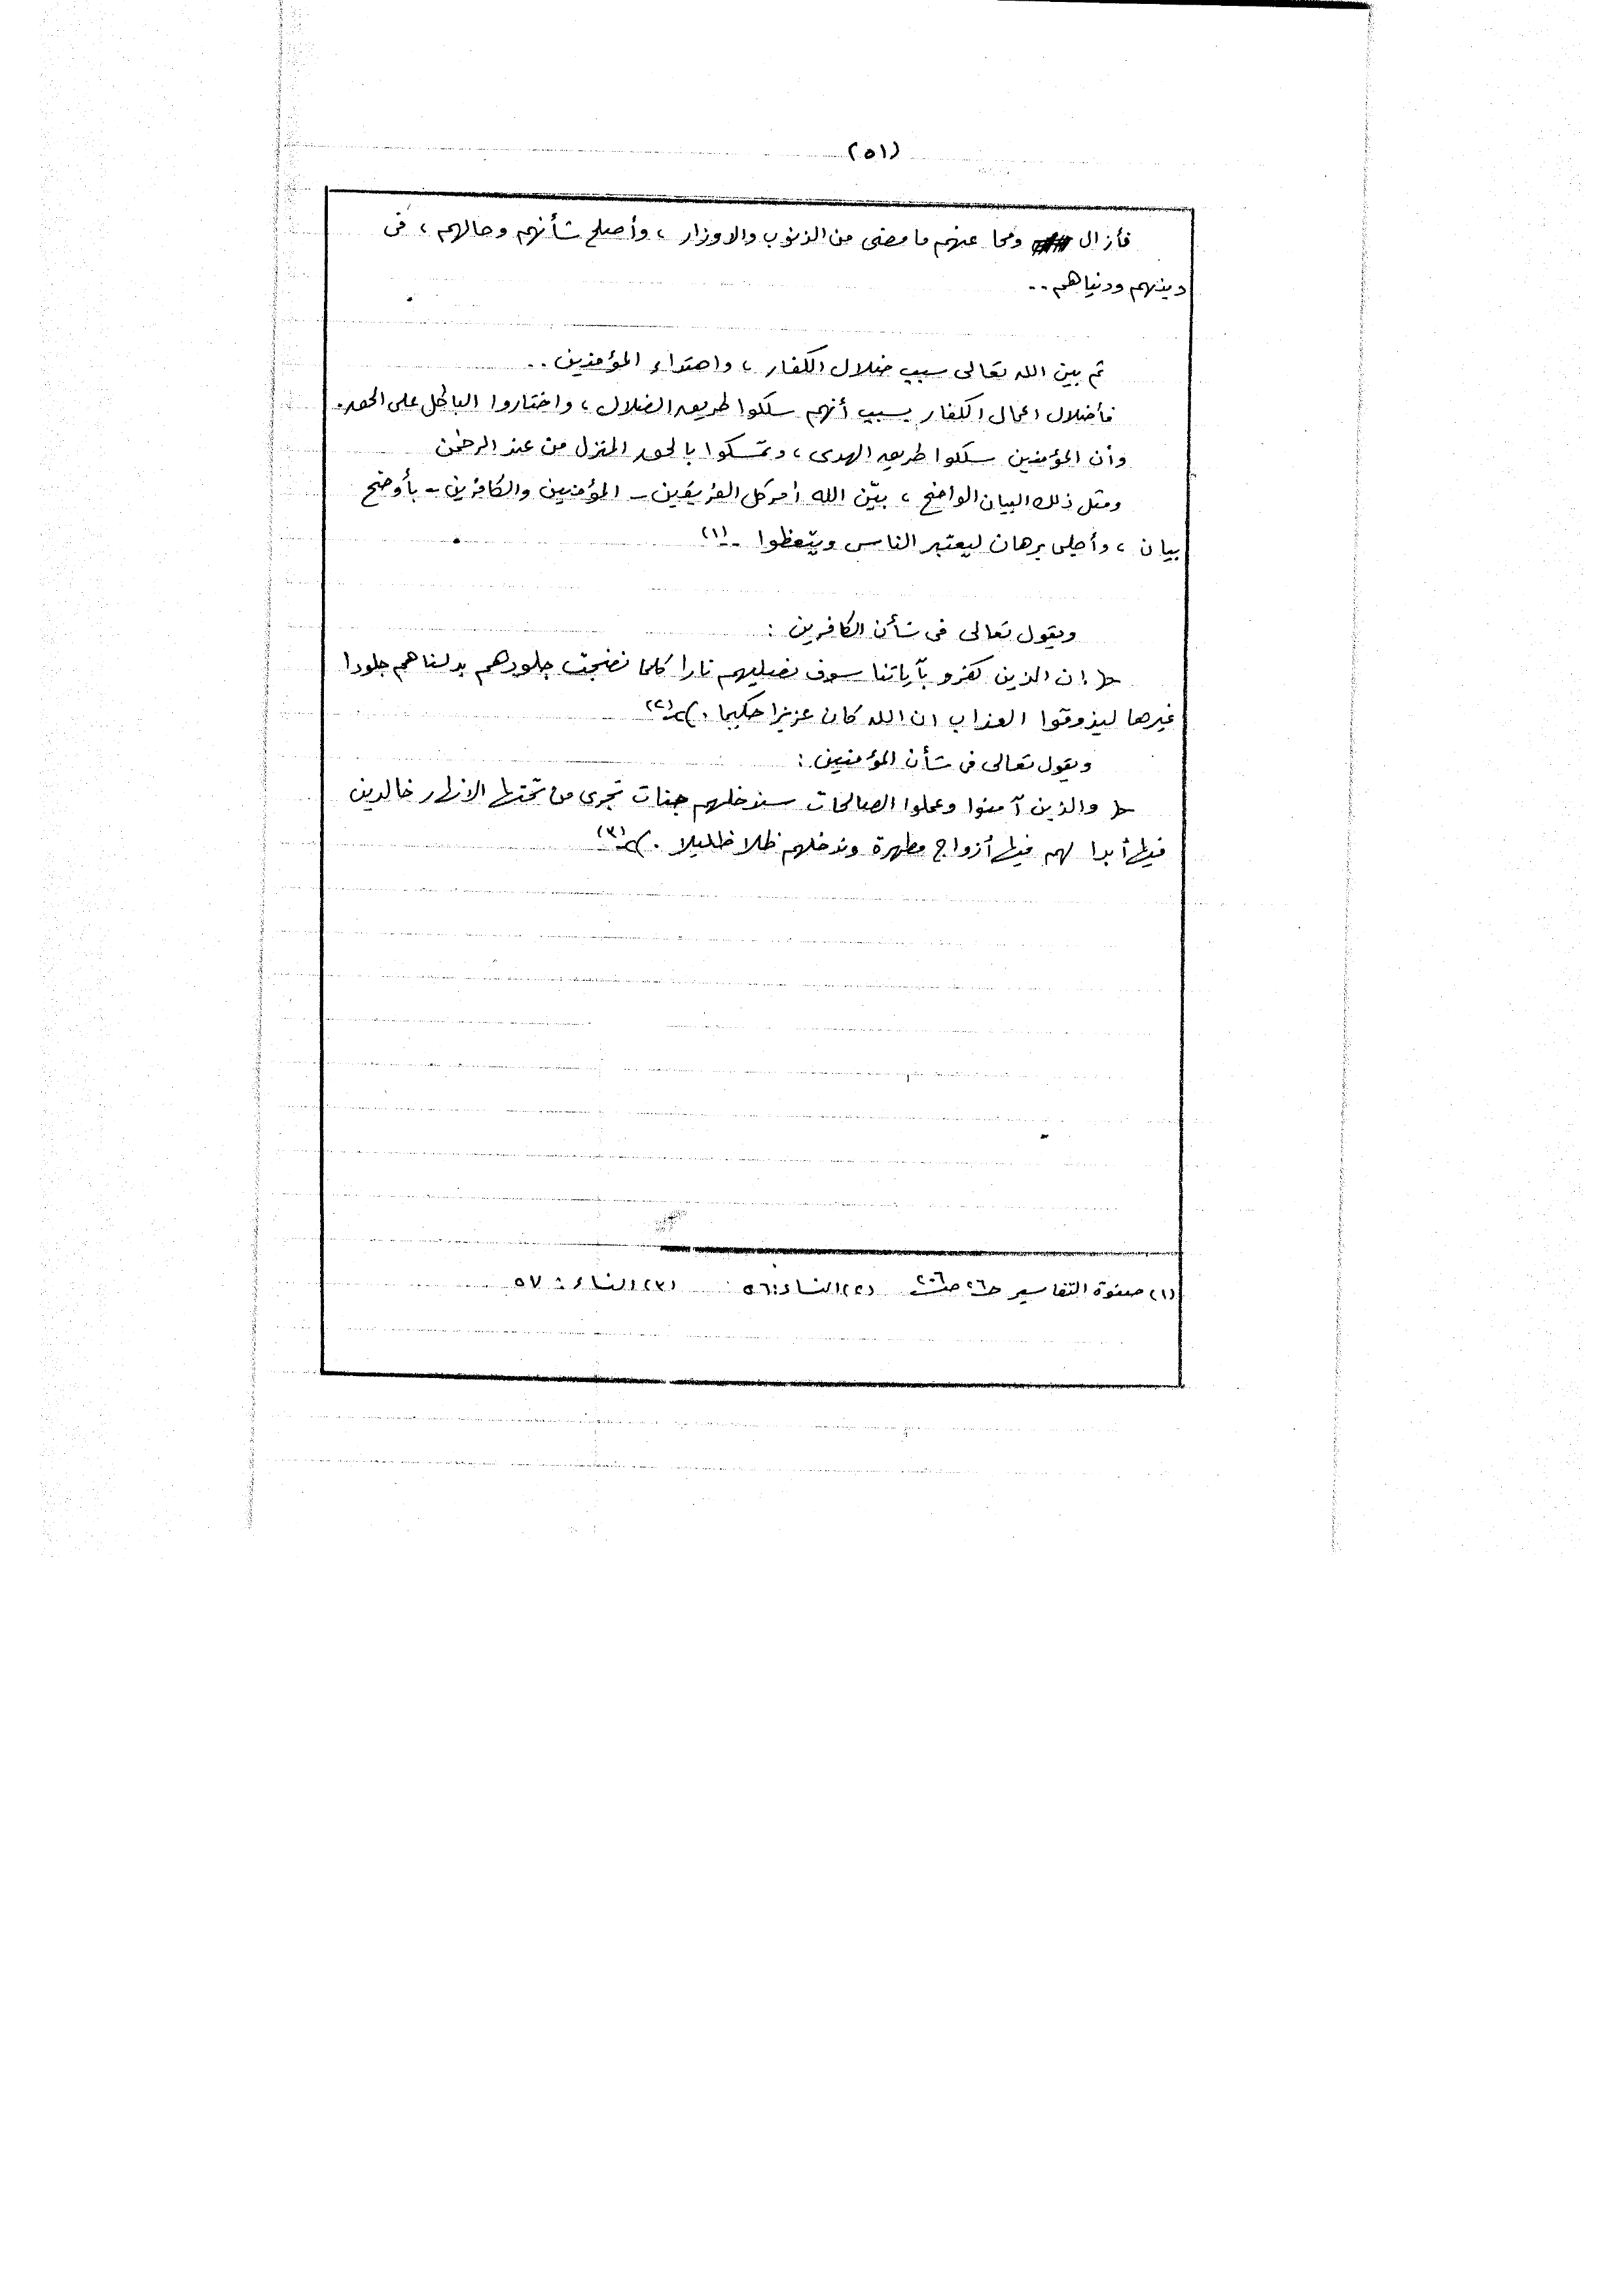 (٥١)
فأزال ومحا عنهم ما مضى من الذنوب والاوزار ، وأصلح شأنهم وحالهم ، فى
دينهم ودنياهم ..
ثم بين الله تعالى سبب ضلال الكفار ، واهتداء المؤمنين ..
فأضلال اعمال الكفار بسبب أنهم سلكوا طريق الضلال ، واختاروا الباطل على الحق .
وأن المؤمنين سلكوا طريق الهدى ، وتمسكوا بالحق المنزل من عند الرحمن
ومثل ذلك البيان الواضح ، بيّن الله أمر كل الفريقين - المؤمنين والكافرين - بأوضح
بيان ، وأجلى برهان ليعتبر الناس ويتعظوا . (١)
ويقول تعالى فى شأن الكافرين :
﴿ ان الذين كفرو بآياتنا سوف نصليهم نارا كلما نضجت جلودهم بدلناهم جلودا
غيرها ليذوقوا العذاب ان الله كان عزيزا حكيما . ﴾ (٢)
ويقول تعالى فى شأن المؤمنين :
﴿ والذين آمنوا وعملوا الصالحات سندخلهم جنات تجرى من تحتها الانهار خالدين
فيها أبدا لهم فيها أزواج مطهرة وندخلهم ظلا ظليلا . ﴾ (٣)
(١) صفوة التفاسير ح ٢٦ ص ٢٠٦ (٢) النساء : ٥٦ (٣) النساء : ٥٧